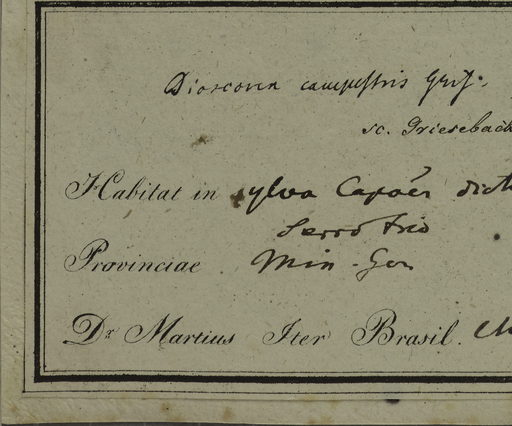 Dioscorea campestris Gris.
sc. Griesebach
Habitat in sylva Capoës dict
Serro frio
Provinciae Min. Ger
Dr Martius Iter Brasil.